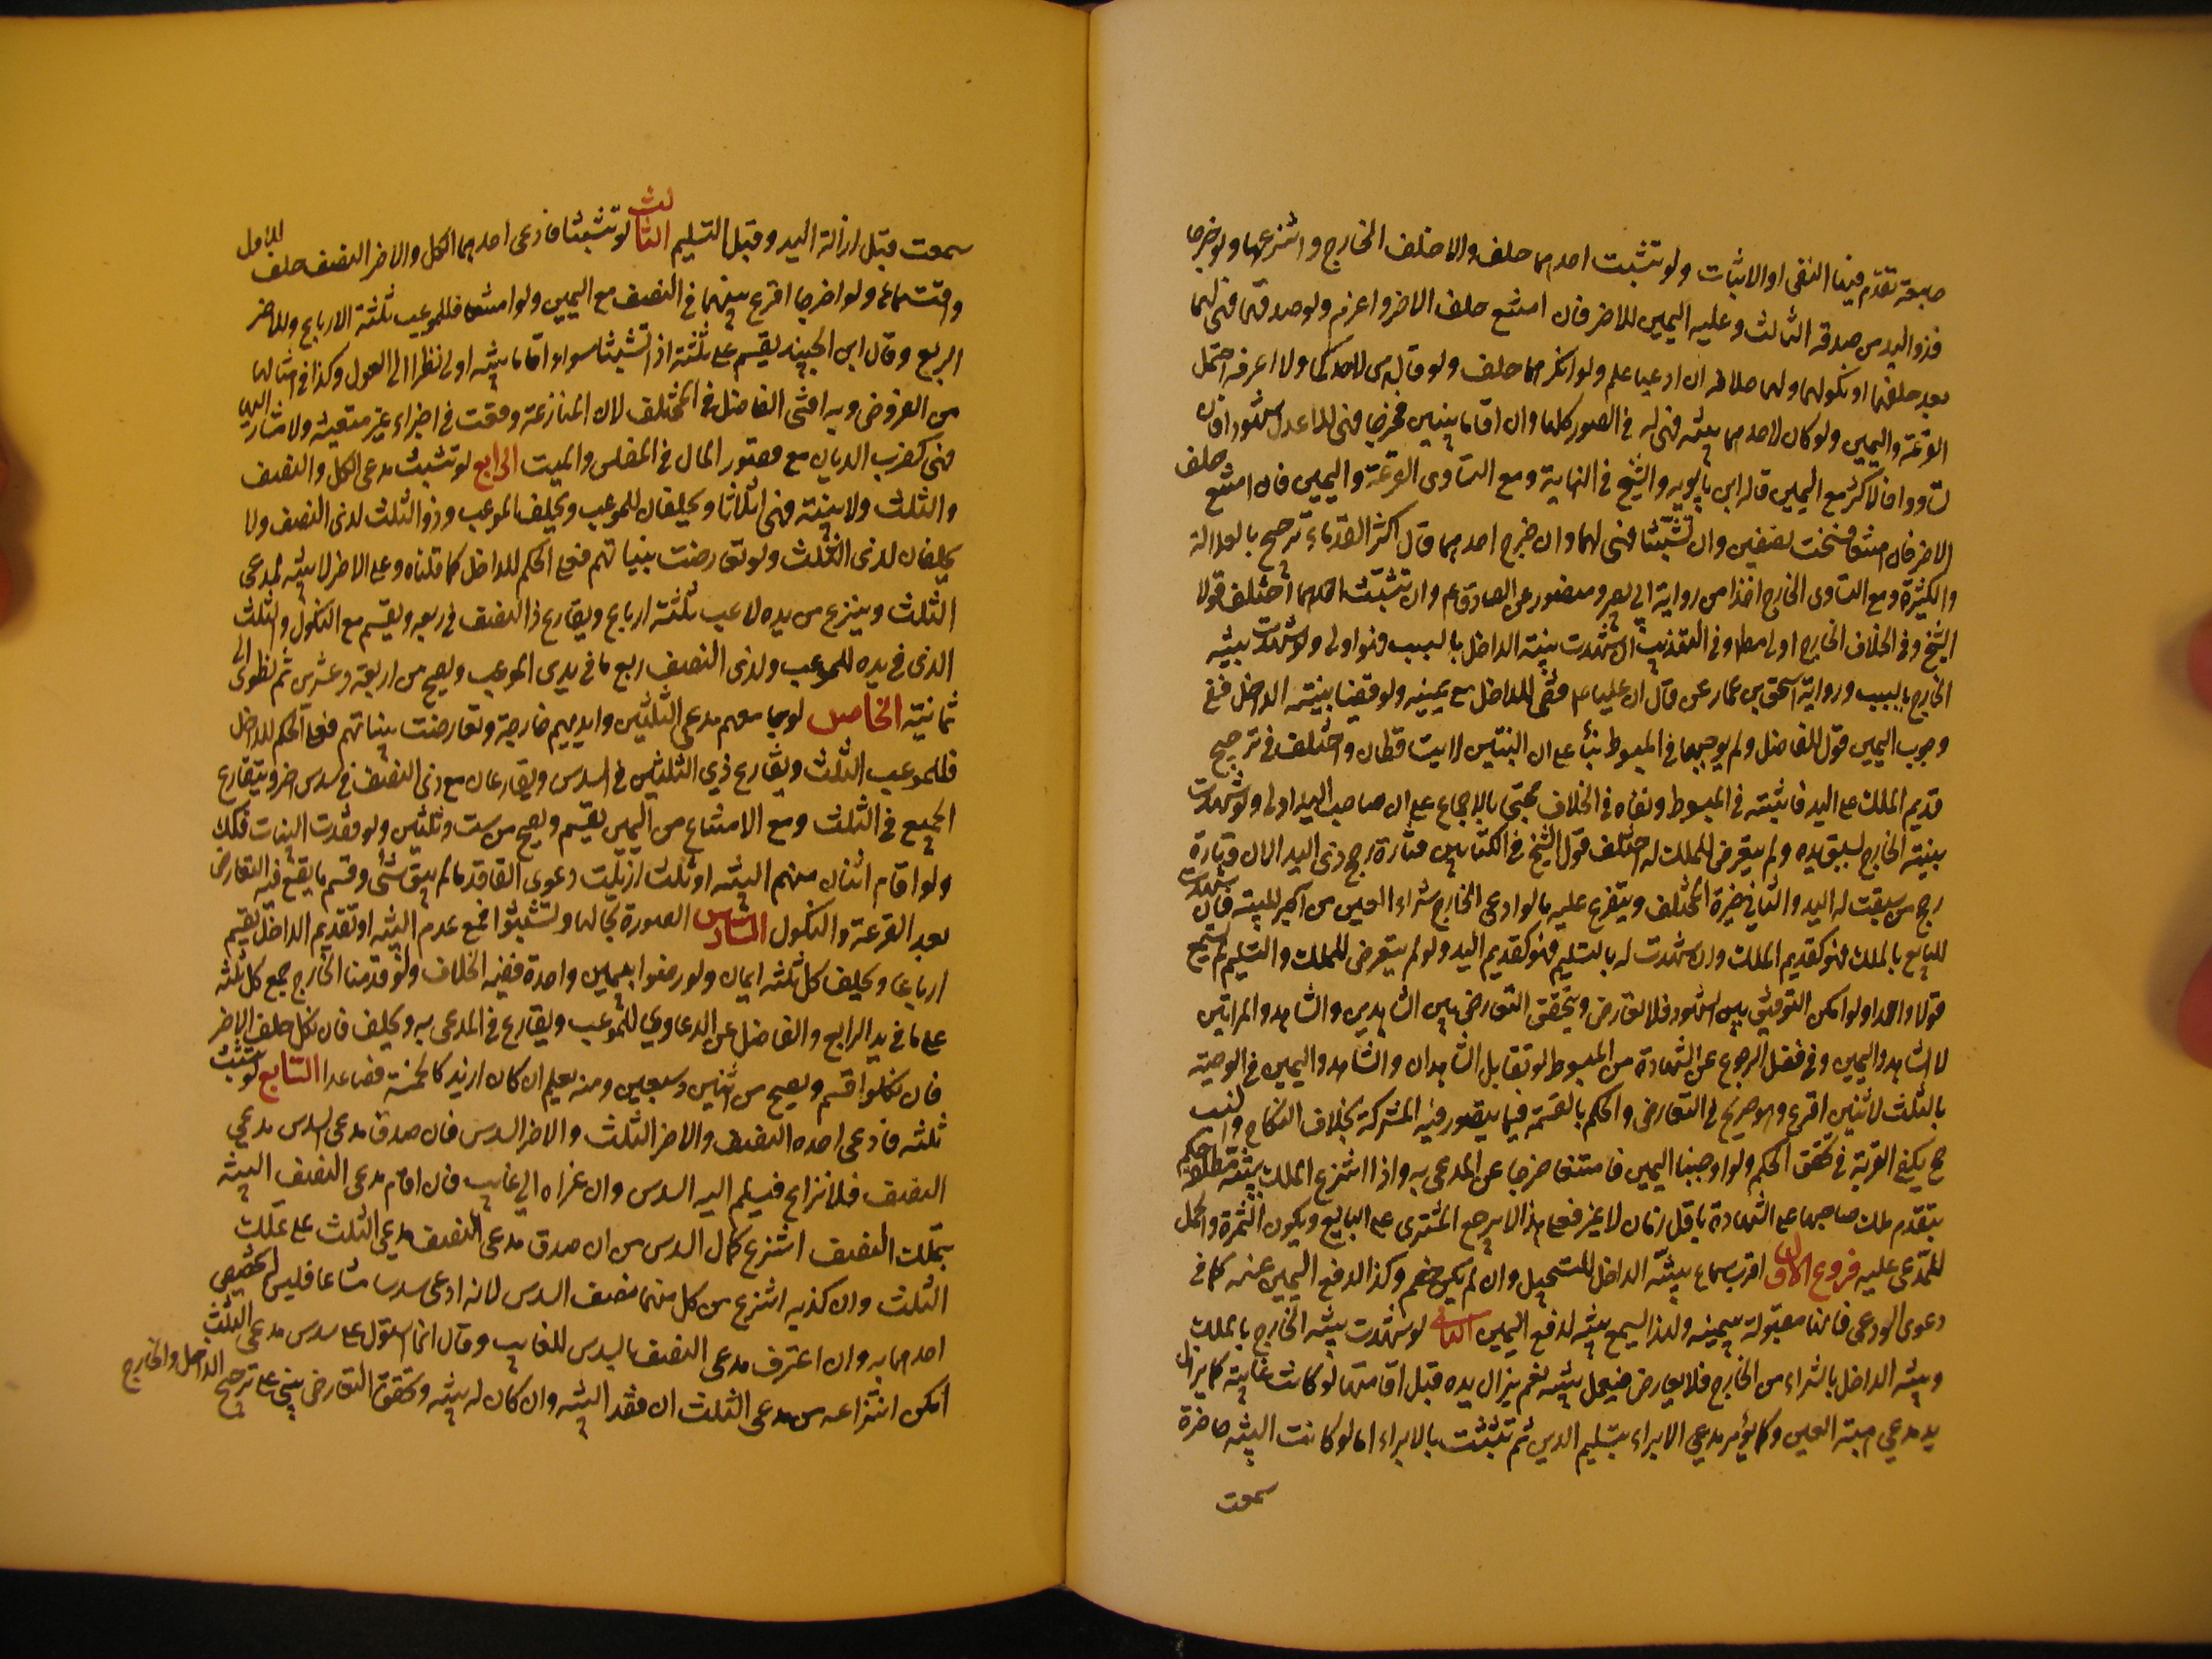 صيغة تقدم فيها النفى او الاثبات ولو تشبث احدهما حلف والا حلف الخارج وانتزعها ولو خرجا
فذو اليد من صدقه الثالث وعليه اليمين للاخر فان امتنع حلف الاخر واغرم ولو صدقهما فهى لهما
بعد حلفهما او نكولهما ولهما حلافه ان ادعيا علمه ولو انكرهما حلف ولو قال هى لاحدكما ولا اعرفه احتمل
القرعة واليمين ولو كان لاحدهما بينة فهى له فى الصور كلها وان اقاما بينتين فخرجا فهى للاعدل شهودا فان
تساووا فالاكثر مع اليمين قاله ابن بابويه والشيخ فى النهاية ومع التساوى القرعة واليمين فان امتنع حلف
الاخر فان امتنعا قسمت نصفين وان تشبثا فهى لهما وان خرج احدهما قال اكثر القدماء ترجح بالعدالة
والكثرة ومع التساوى الخارج اخذا من رواية ابى بصير ومنصور عن الصادق عم وان تشبث احدهما اختلف قولا
الشيخ وفى الخلاف الخارج اولى مطا وفى التهذيب ان شهدت بينة الداخل بالسبب فهو اولى ولو شهدت بينه
الخارج بالسبب ورواية اسحق بن عمار عن قال ان عليا عم قضى للداخل مع يمينه ولو قضينا ببينة الداخل ففى
وجوب اليمين قول للفاضل ولم يوجبها فى المبسوط بناء على ان البينتين لا يتساقطان واختلف فى ترجيح
قديم الملك على اليد فاثبته فى المبسوط ونفاه فى الخلاف محتجا بالاجماع على ان صاحب اليد اولى ولو شهدت
بينة الخارج بسبق يده ولم يتعرض للملك له اختلف قول الشيخ فى الكتابين فتارة رجح ذى اليد الان وتارة
رجح من سبقت له اليد والثانى خيرة المختلف ويتفرع عليه ما لو ادعى الخارج شراء العين من آخر للبينة فان شهدت
للبايع بالملك فهو كقديم الملك وان شهدت له بالتسليم فهو كقديم اليد ولو لم يتعرض للملك والتسليم لم تسمع
قولا واحدا ولو امكن التوفيق بين الشهود فلا تعارض ويتحقق التعارض بين الشاهدين والشاهد والمراتين
لا الشاهد واليمين وفى فصل الرجوع عن الشهادة من المبسوط لو تقابل الشاهدان والشاهد واليمين فى الوصية
بالثلث لاثنين اقرع وهو صريح فى التعارض والحكم بالقسمة فيما يتصور فيه الشركة بخلاف النكاح والنسب
حيث يكفى القرعة فى تحقق الحكم ولو اوجبنا اليمين فامتنعا خرجا عن المدعى به واذا انتزع الملك ببينة مطلقا حكم
بتقدم ملك صاحبها على الشهادة باقل زمان لا غير فعلى هذا لا يرجع المشترى على البايع ويكون الثمرة والحمل
للمدعى عليه فروع الاول اقرب سماع بينة الداخل للتسجيل وان لم يكن خصم وكذا لدفع اليمين عنه كما فى
دعوى الودعى فانها مقبولة بيمينه ولهذا يسمع بينته لدفع اليمين الثانى لو شهدت بينة الخارج بالملك
وبينة الداخل بالشراء من الخارج فلا تعارض فيعمل ببينته نعم يزال يده قبل اقامتها لو كانت غايبة كما يزال
يد مدعى هبة العين وكما يؤمر مدعى الابراء بتسليم الدين ثم تثبت بالابراء اما لو كانت البينة حاضرة
سمعت
سمعت قبل ازالة اليد وقبل التسليم الثالث لو تشبثا فادعى احدهما الكل والاخر النصف حلف للاول
واقتسماها ولو اخرجا اقرع بينهما فى النصف مع اليمين ولو امتنعا فللموعب ثلثة الارباع وللاخر
الربع وقال ابن الجنيد يقسم على ثلثة اذا تشبثا سواء اقاما بينة او لا نظرا الى العول وكذا فى امثالها
من الفروض وبه افتى الفاضل فى المختلف لان المنازعة وقعت فى اجزاء غير متعينة ولا مشار اليها
فهى كضرب الديان مع قصور المال فى المفلس والميت الرابع لو تشبث مدعى الكل والنصف
والثلث ولا بينة فهى اثلاثا ويحلفان للموعب ويحلف الموعب وذو الثلث لذى النصف ولا
يحلفان لذى الثلث ولو تعارضت بيناتهم فعلى الحكم للداخل كما قلناه وعلى الاخر لا بينة لمدعى
الثلث وينزع من يده لاعب ثلثة ارباع ويقارع ذا النصف فى ربعه ويقسم مع النكول والثلث
الذى فى يده للموعب ولذى النصف ربع ما فى يدى الموعب ويصح من اربعة وعشرين ثم تطوى الى
ثمانية الخامس لو جامعهم مدعى الثلثين وايديهم خارجة وتعارضت بيناتهم فعلى الحكم للداخل
فللموعب الثلث ويقارع ذي الثلثين فى السدس ويقارعان مع ذى النصف فى سدس اخر ويتقارع
الجميع فى الثلث ومع الامتناع من اليمين يقسم ويصح من ست وثلثين ولو فقدت البينات فكذلك
ولو اقام اثنان منهم البينة او ثلث ازيلت دعوى الفاقد ما لم يبق شئ وقسم ما يقع فيه التعارض
بعد القرعة والنكول السادس الصورة بحالها وتشبثوا فمع عدم البينة او تقديم الداخل يقسم
ارباعا ويحلف كل ثلثة ايمان ولو رضوا بيمين واحدة ففيه الخلاف ولو قدمنا الخارج جمع كل ثلثه
على ما فى يد الرابع والفاضل عن الدعاوى للموعب ويقارع فى المدعى به ويحلف فان نكل حلف الاخر
فان نكلوا قسم ويصح من اثنين وسبعين ومنه يعلم ان كان ازيد كالخمسة فصاعدا السابع لو تشبث
ثلثه فادعى احده النصف والاخر الثلث والاخر السدس فان صدق مدعى السدس مدعى
النصف فلا نزاع فيسلم اليه السدس وان عزاه الى غايب فان اقام مدعى النصف البينة
بتملك النصف انتزع كمال السدس من ان صدق مدعى النصف مدعى الثلث على تملك
الثلث وان كذبه انتزع من كل منهما نصف السدس لانه ادعى سدسا مشاعا فليس لتخصيص
احدهما به وان اعترف مدعى النصف بالسدس للغايب وقال انما استولى على سدس مدعى الثلث
امكن انتزاعه من مدعى الثلث ان فقد البينة وان كان له بينة وتحقق التعارض بنى على ترجيح الداخل والخارج